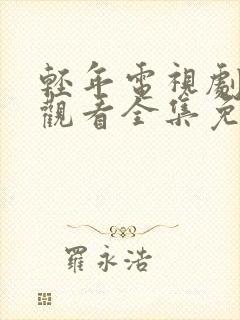 輕年電視劇
觀看全集免
羅永浩